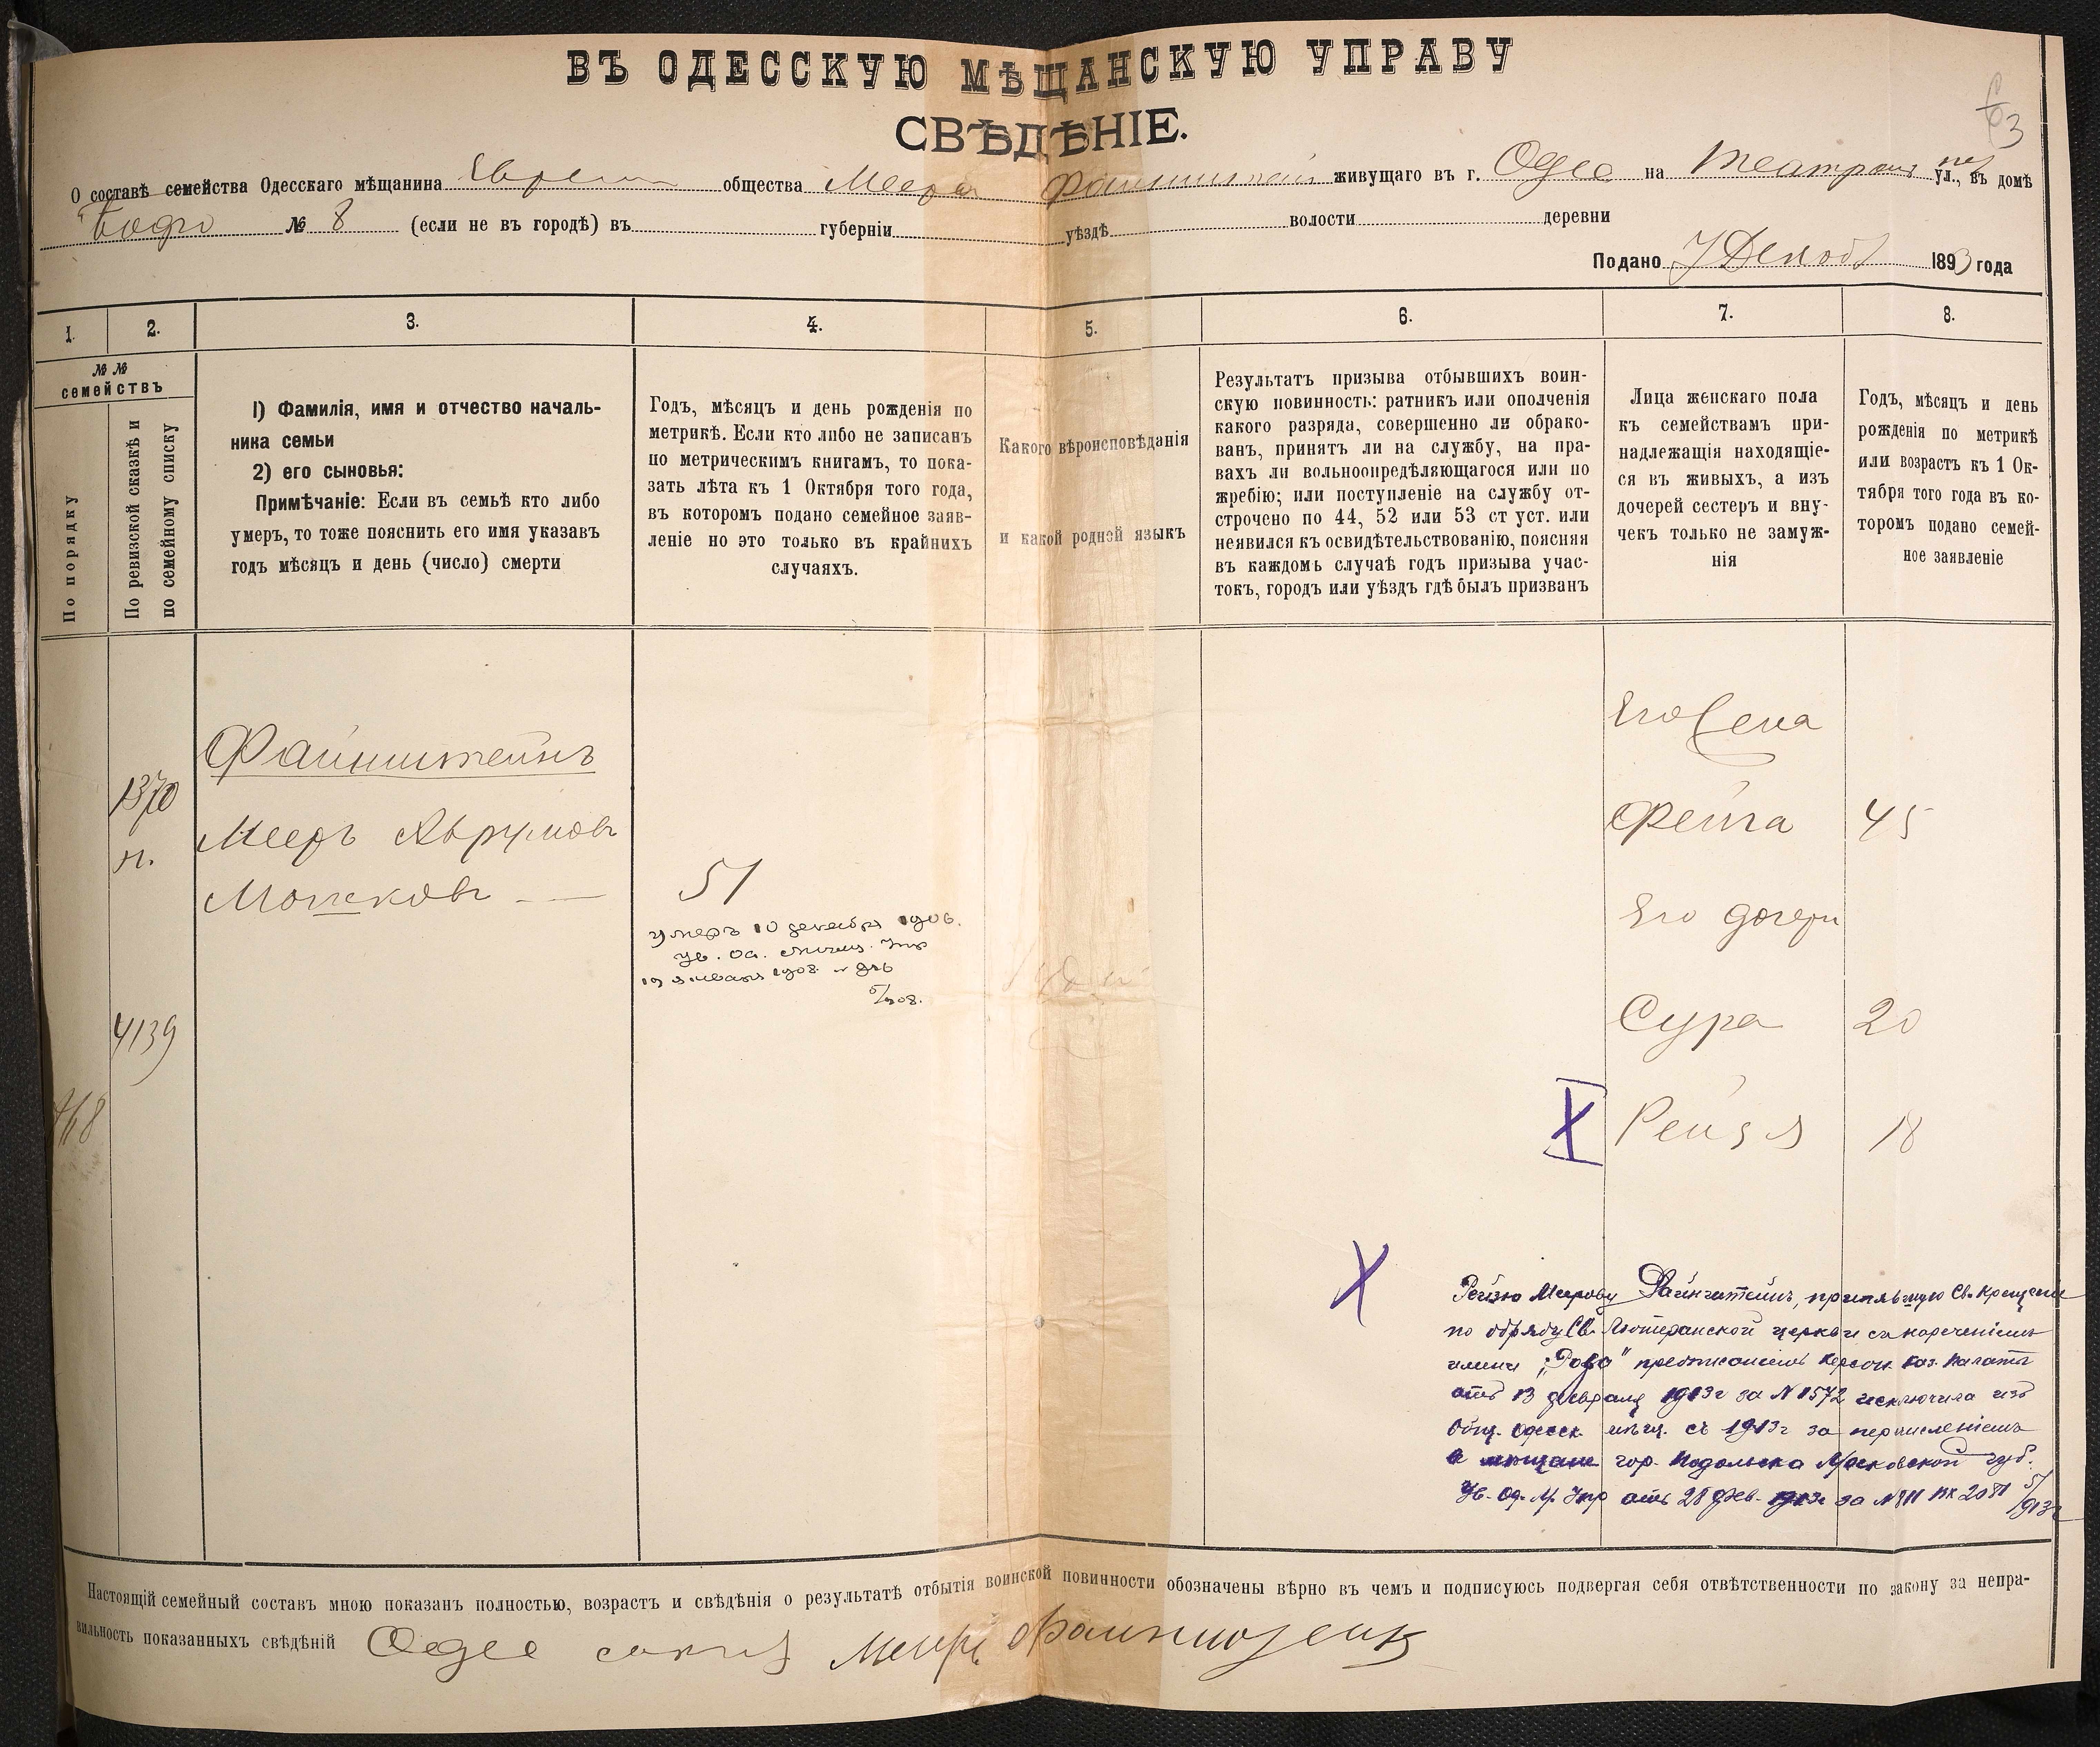 ВЪ ОДЕССКУЮ МѢЩАНСКУЮ УПРАВУ
СВѢДѢНІЕ.
63
О составѣ семейства Одесскаго мѣщанина общества Меера Файнштейн живущаго въ г. Одес на Театрал пер ул., въ домѣ
№ 8 (если не въ городѣ) въ губерніи уѣздѣ волости деревни
Подано 7 Декаб 1893 года
1. 2. 3. 4. 5. 6. 7. 8.
№ №
семействъ
По порядку
По ревизской сказкѣ и
по семейному списку
1) Фамилія, имя и отчество началь-
ника семьи
2) его сыновья:
Примѣчаніе: Если въ семьѣ кто либо
умеръ, то тоже пояснить его имя указавъ
годъ мѣсяцъ и день (число) смерти
Годъ, мѣсяцъ и день рожденія по
метрикѣ. Если кто либо не записанъ
по метрическимъ книгамъ, то пока-
зать лѣта къ 1 Октября того года,
въ которомъ подано семейное заяв-
леніе но это только въ крайнихъ
случаяхъ.
Какого вѣроисповѣданія
и какой родной языкъ
Результатъ призыва отбывшихъ воин-
скую повинность: ратникъ или ополченія
какого разряда, совершенно ли обрако-
ванъ, принятъ ли на службу, на пра-
вахъ ли вольноопредѣляющагося или по
жребію; или поступленіе на службу от-
строчено по 44, 52 или 53 ст уст. или
неявился къ освидѣтельствованію, поясняя
въ каждомъ случаѣ годъ призыва учас-
токъ, городъ или уѣздъ гдѣ былъ призванъ
Лица женскаго пола
къ семействамъ при-
надлежащія находящіе-
ся въ живыхъ, а изъ
дочерей сестеръ и вну-
чекъ только не замуж-
нія
Годъ, мѣсяцъ и день
рожденія по метрикѣ
или возрастъ къ 1 Ок-
тября того года въ ко-
торомъ подано семей-
ное заявленіе
1370
н.
4139
Файнштейнъ
Мееръ Аврумовъ
Мошковъ
51
умеръ 10 декабря 1906.
ув. Од. мѣщ. Упр
19 января 1908
Его жена
Фейга 45
Его дочери
Сура 20
Рейзя 18
Рейзю Меерову Файнштейнъ, принявшую Св. Крещеніе
по обряду Св. Лютеранской церкви съ нареченіемъ
имени „Роза" предписаніемъ Херсон. Каз. Палаты
отъ 13 февраля 1913г за № 1572 исключена изъ
Общ. Одесск мѣщ. съ 1913г за перечисленіемъ
в мещане гор. Подольска Московской губ.
Ув. Од. М. Упр отъ 28 Фев. 1913г за № 811 вх 2081
Настоящій семейный составъ мною показанъ полностью, возрастъ и свѣдѣнія о результатѣ отбытія воинской повинности обозначены вѣрно въ чемъ и подписуюсь подвергая себя отвѣтственности по закону за непра-
вильность показанныхъ свѣдѣній